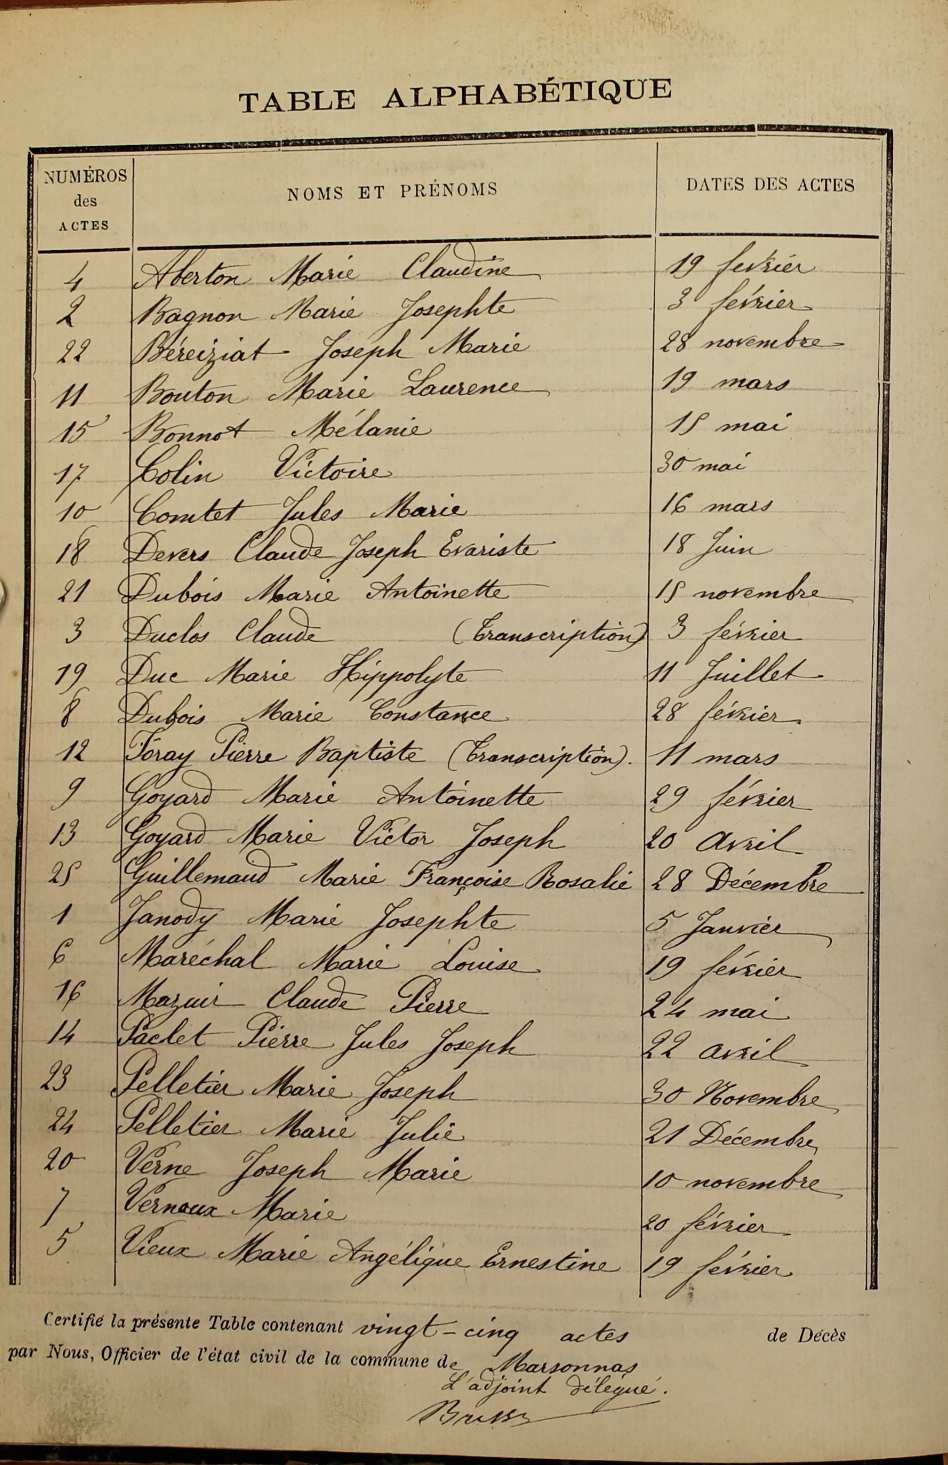 TABLE ALPHABÉTIQUE
NUMÉROS des ACTES NOMS ET PRÉNOMS DATES DES ACTES
4 Aberton Marie Claudine 19 février
2 Bagnon Marie Josephte 3 février
22 Béreiziat Joseph Marie 28 novembre
11 Bouton Marie Laurence 19 mars
15 Bonnot Mélanie 15 mai
17 Colin Victoire 30 mai
10 Comtet Jules Marie 16 mars
18 Devers Claude Joseph Evariste 18 Juin
21 Dubois Marie Antoinette 15 novembre
3 Duclos Claude (Transcription) 3 février
19 Duc Marie Hippolyte 11 Juillet
8 Dubois Marie Constance 28 février
12 Foray Pierre Baptiste (Transcription). 11 mars
9 Goyard Marie Antoinette 29 février
13 Goyard Marie Victor Joseph 20 Avril
25 Guillemaud Marie Françoise Rosalie 28 Décembre
1 Janody Marie Josephte 5 Janvier
6 Maréchal Marie Louise 19 février
16 Mazuir Claude Pierre 24 mai
14 Paclet Pierre Jules Joseph 22 avril
23 Pelletier Marie Joseph 30 Novembre
24 Pelletier Marie Julie 21 Décembre
20 Verne Joseph Marie 10 novembre
7 Vernoux Marie 20 février
5 Vieux Marie Angélique Ernestine 19 février
Certifié la présente Table contenant vingt-cinq actes de Décès
par Nous, Officier de l'état civil de la commune de Marsonnas
L'adjoint délégué.